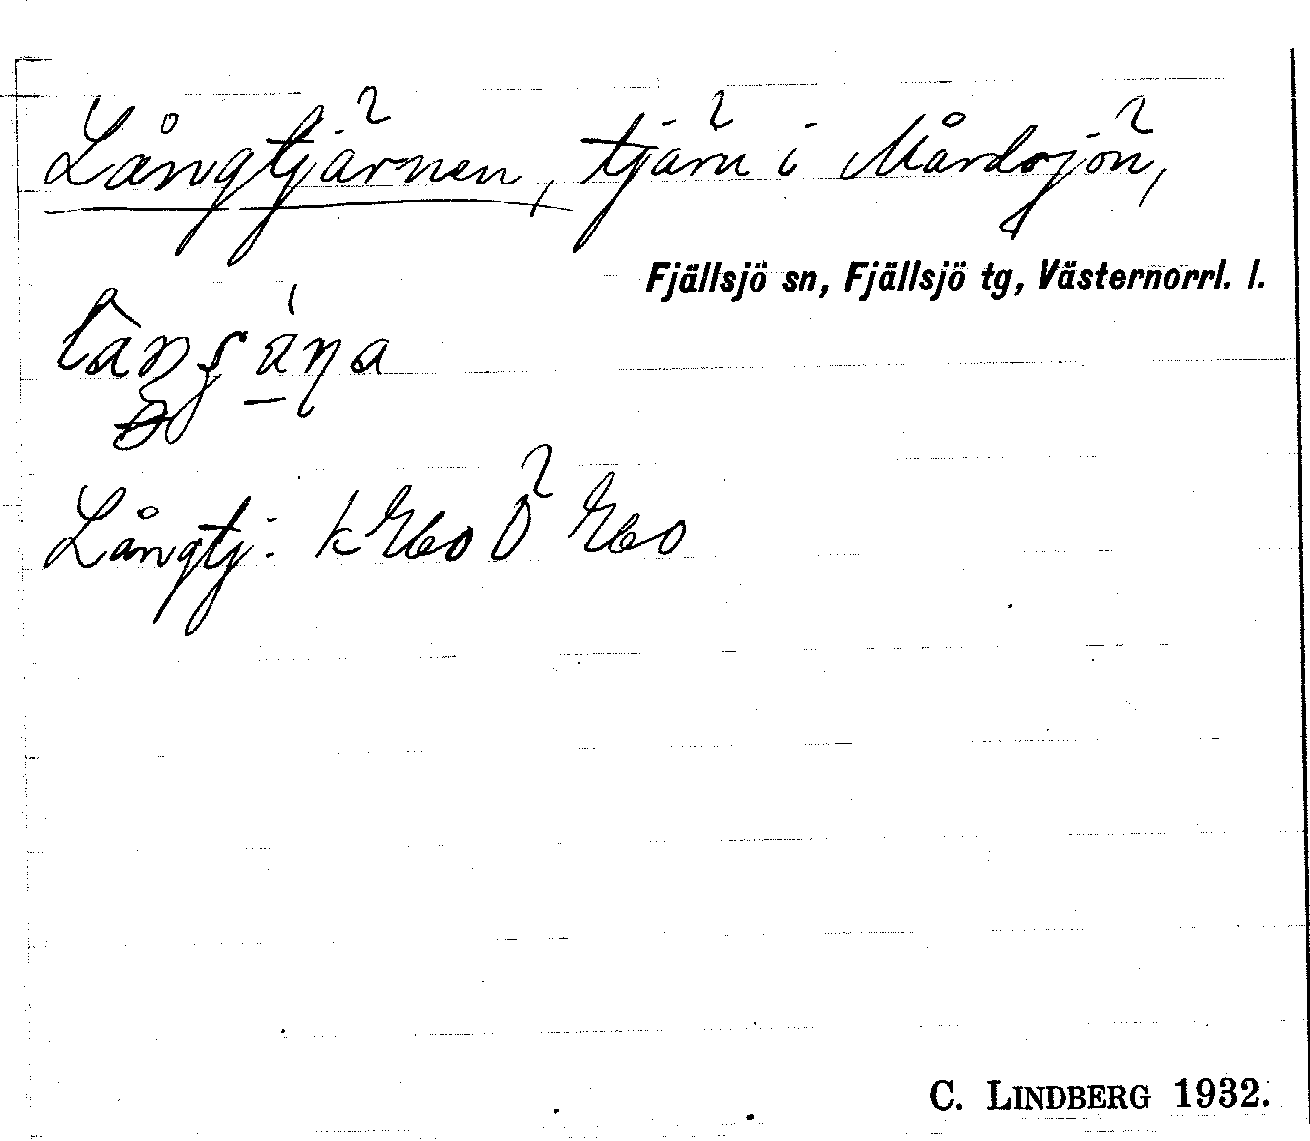 Långtjärnen, tjärn i Mårdsjön,
Fjällsjö sn, Fjällsjö tg, Västernorrl. l.
Långtj:
C. LINDBERG 1932.